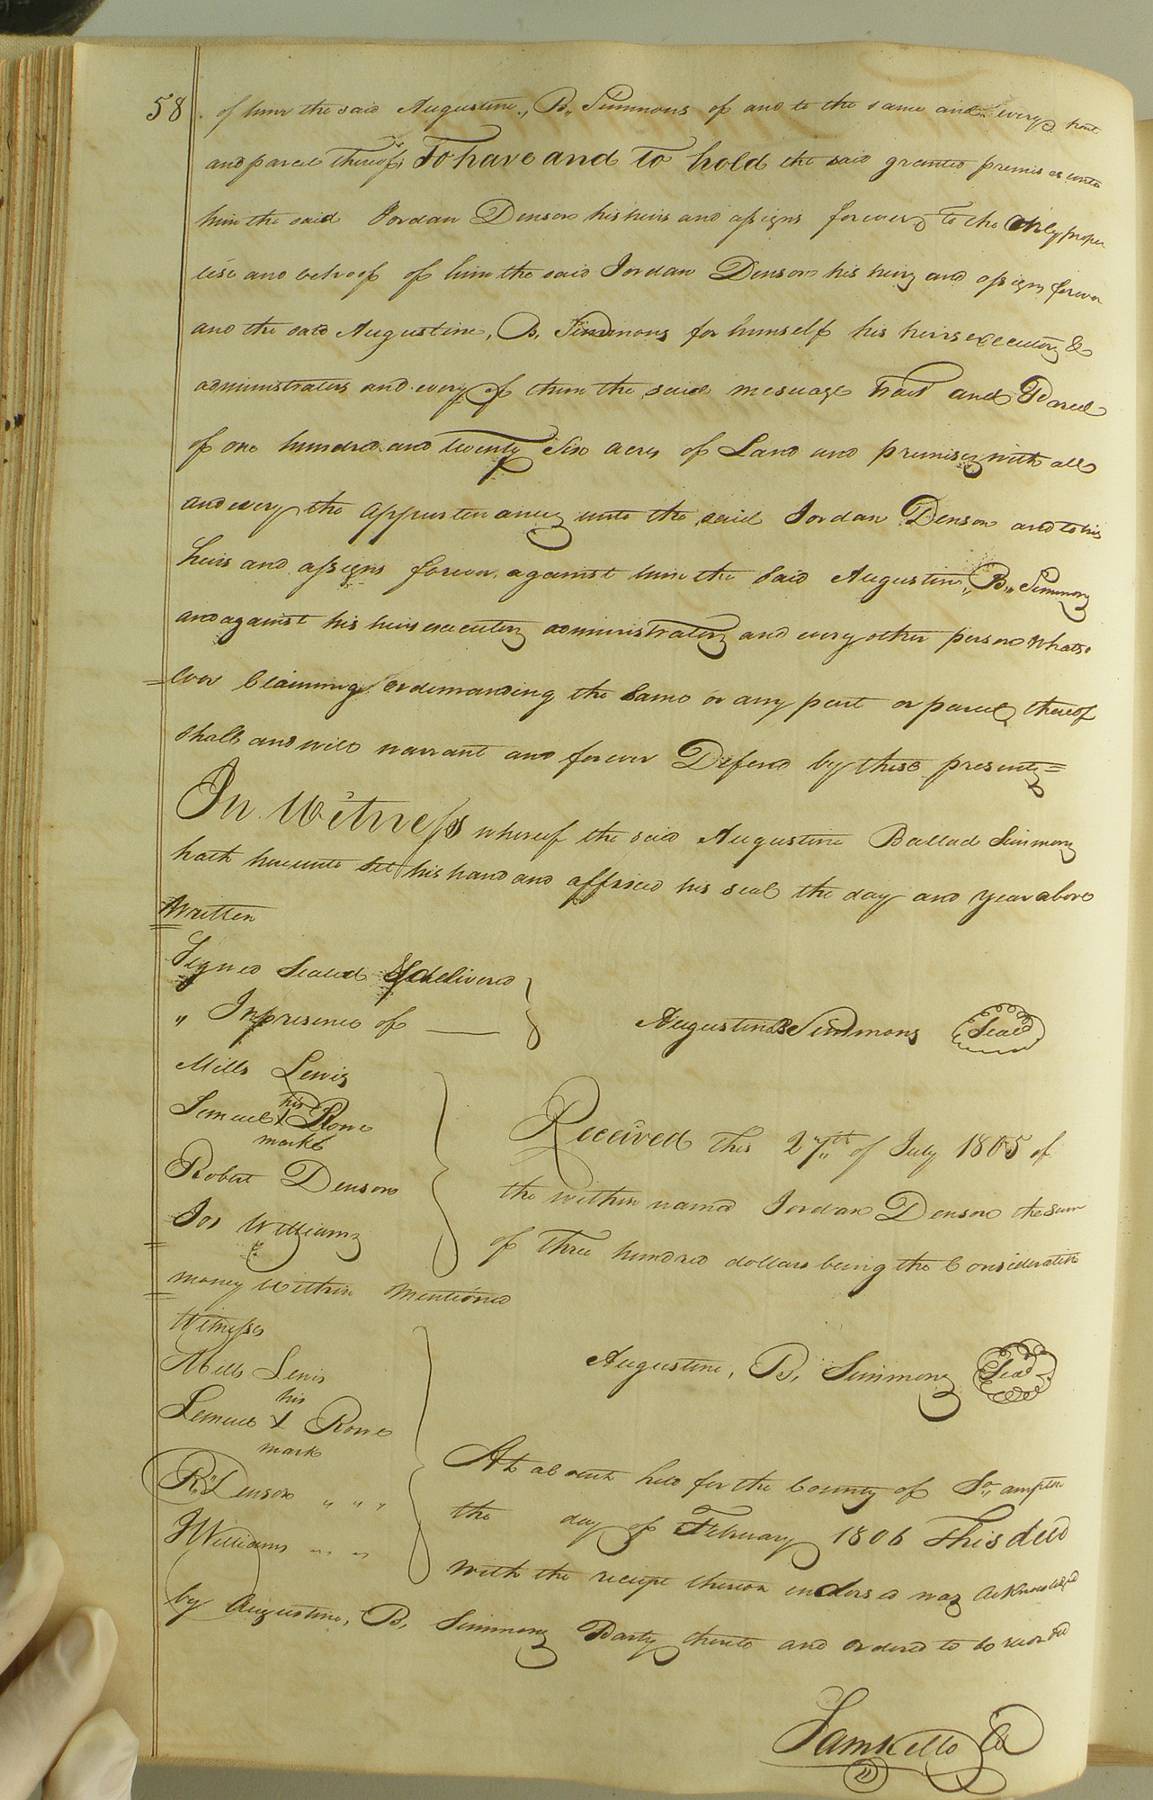 58 . of him the said Augustine,, B,, Simmons of and to the same and every part
and parcel thereof, To have and to hold the said granted premises unto
him the said Jordan Denson his heirs and assigns forever To the only proper
use and behoof of him the said Jordan Denson his heirs and assigns forever
and the said Augustine, B, Simmons for himself his heirs executors &
administrators and every of them the said mesuage tract and Parcel
of one hundred and twenty Six acres of Land and premises with all
and every the appurtenances unto the said Jordan Denson and to his
heirs and assigns forever against him the Said Augustine,, B,, Simmons
and against his heirs executors administrators and every other person whatso
=ever Claiming or demanding the Same or any part or parcel thereof
Shall and will warrant and forever Defend by these presents=
In Witness whereof the said Augustine Ballad Simmons
hath hereunto Set his hand and affixed his seal the day and Year above
Written
Signed Sealed & delivered
,, In presence of
Augustine B Simmons Seal
Mills Lewis
his
Lemuel X Rowe
mark
Robert Denson
Jos Williams
Received this 27th of July 1805 of
the within named Jordan Denson the sum
of Three hundred dollars being the Consideration
money within Mentioned
Witness
Augustine, B, Simmons Seal
Mills Lewis
his
Lemuel X Rowe
mark
R,, Denson ,, ,, ,,
J Williams ,, ,,
At a Court held for the County of So,, ampton
the day of February 1806 This deed
with the reciept thereon endorsed was Acknowledged
by Augustine, B, Simmons Party thereto and ordered to be recorded